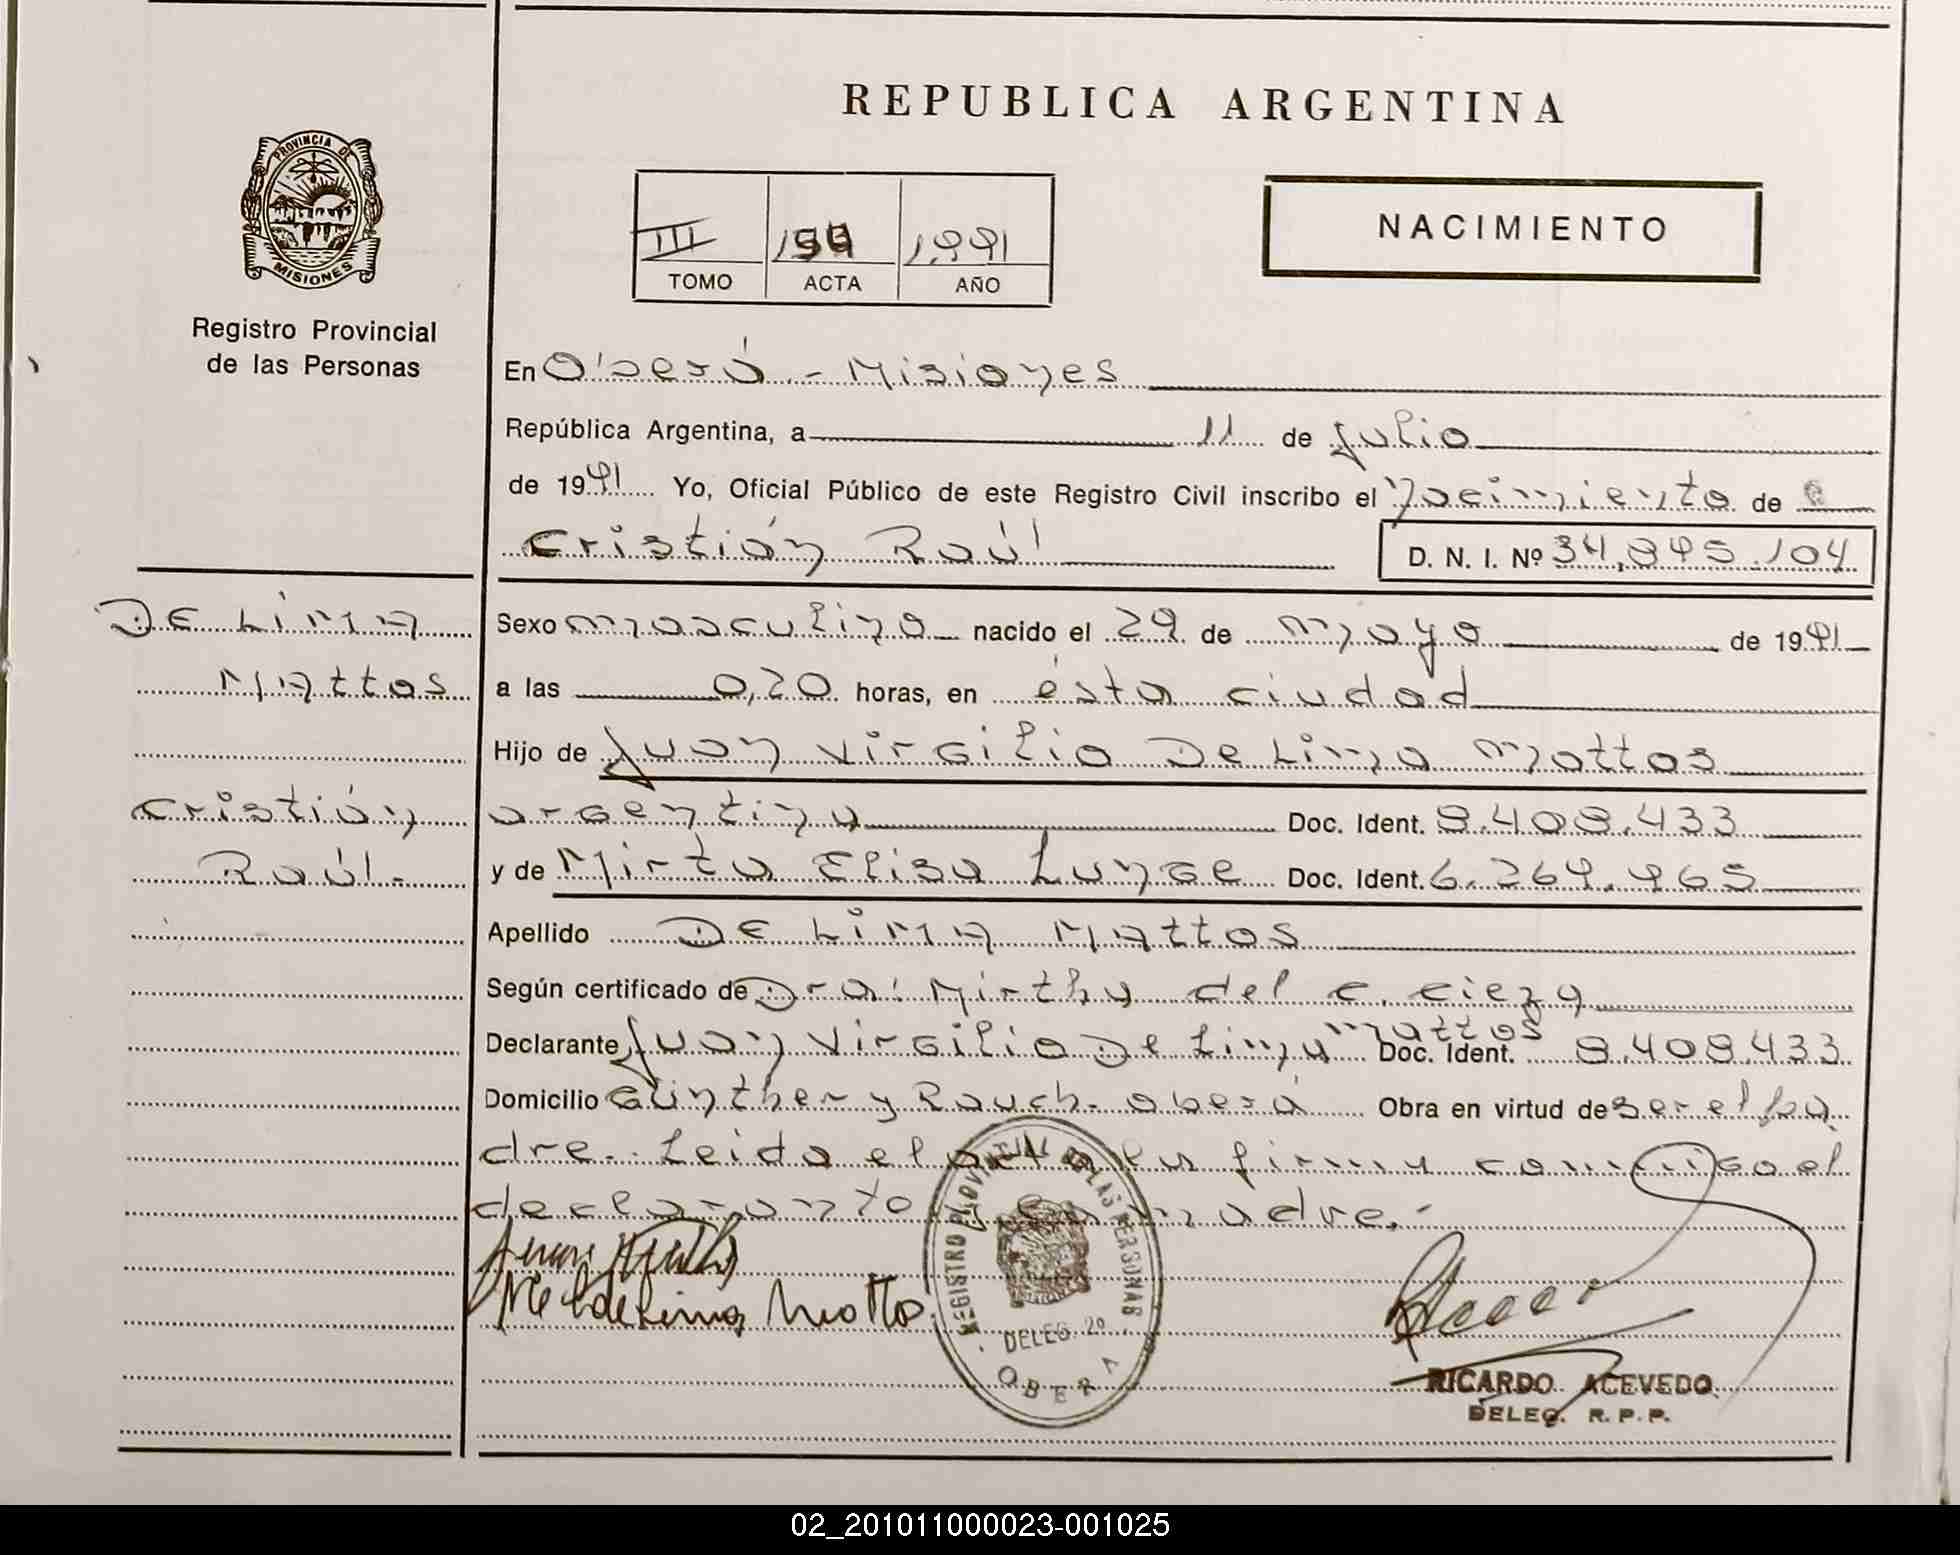 REPUBLICA ARGENTINA
PROVINCIA DE MISIONES
Registro Provincial
de las Personas
III 1991
TOMO ACTA AÑO
NACIMIENTO
En Oberá - Misiones
República Argentina, a 11 de Julio
de 1991 Yo, Oficial Público de este Registro Civil inscribo el Nacimiento de
Cristián Raúl D. N. I. Nº 34,895.104
DE LIMA
MAttos
Cristián
Raúl.-
Sexo masculino nacido el 29 de mayo de 1991
a las 0,20 horas, en ésta ciudad
Hijo de Juan Virgilio De Lima Mattos
argentino Doc. Ident. 8.408.433
y de Mirta Elisa Lunge Doc. Ident. 6.264.965
Apellido DE LIMA MAttos
Según certificado de Dra: Mirtha del C. Cieza
Declarante Juan Virgilio De Lima Mattos Doc. Ident. 8.408.433
Domicilio Günther y Rauch - Oberá Obra en virtud de ser el pa
dre.- Leida el acta la firma conmigo el
declarante y la madre.-
REGISTRO PROVINCIAL DE LAS PERSONAS
DELEG. 2º
OBERA
RICARDO ACEVEDO
DELEG. R.P.P.
02_201011000023-001025